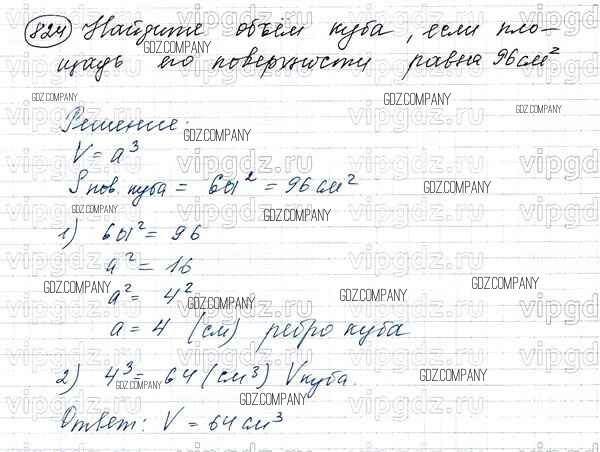 824 Найдите объём куба, если пло-
щадь его поверхности равна 96 см²
Решение:
V = a³
S пов. куба = 6a² = 96 см²
1) 6a² = 96
a² = 16
a² = 4²
a = 4 (см) ребро куба
2) 4³ = 64 (см³) V куба.
Ответ: V = 64 см³
GDZ.COMPANY
vipgdz.ru